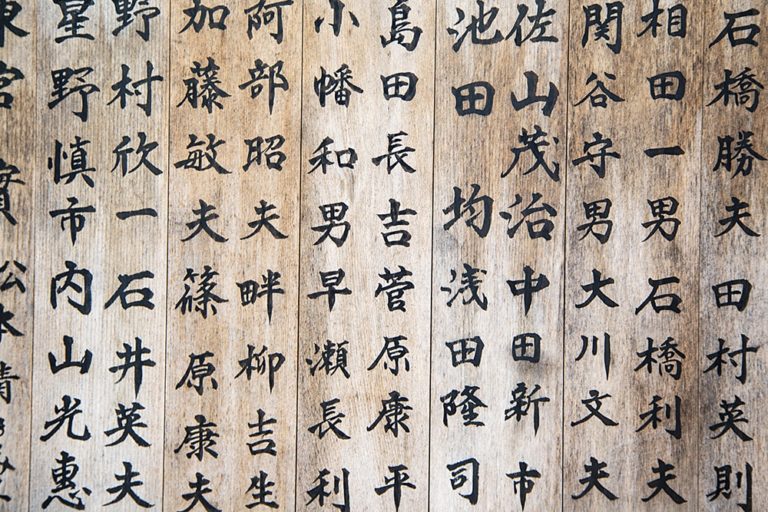 石橋勝夫 田村英則
相田一男 石橋利夫
関谷守男 大川文夫
佐山茂治 中田新市
池田 均 浅田隆司
島田長吉 菅原康平
小幡和男 早瀬長利
阿部昭夫 畔柳吉生
加藤敏夫 篠原康夫
野村欣一 石井英夫
星野慎市 内山光惠
東宮 實 松本晴